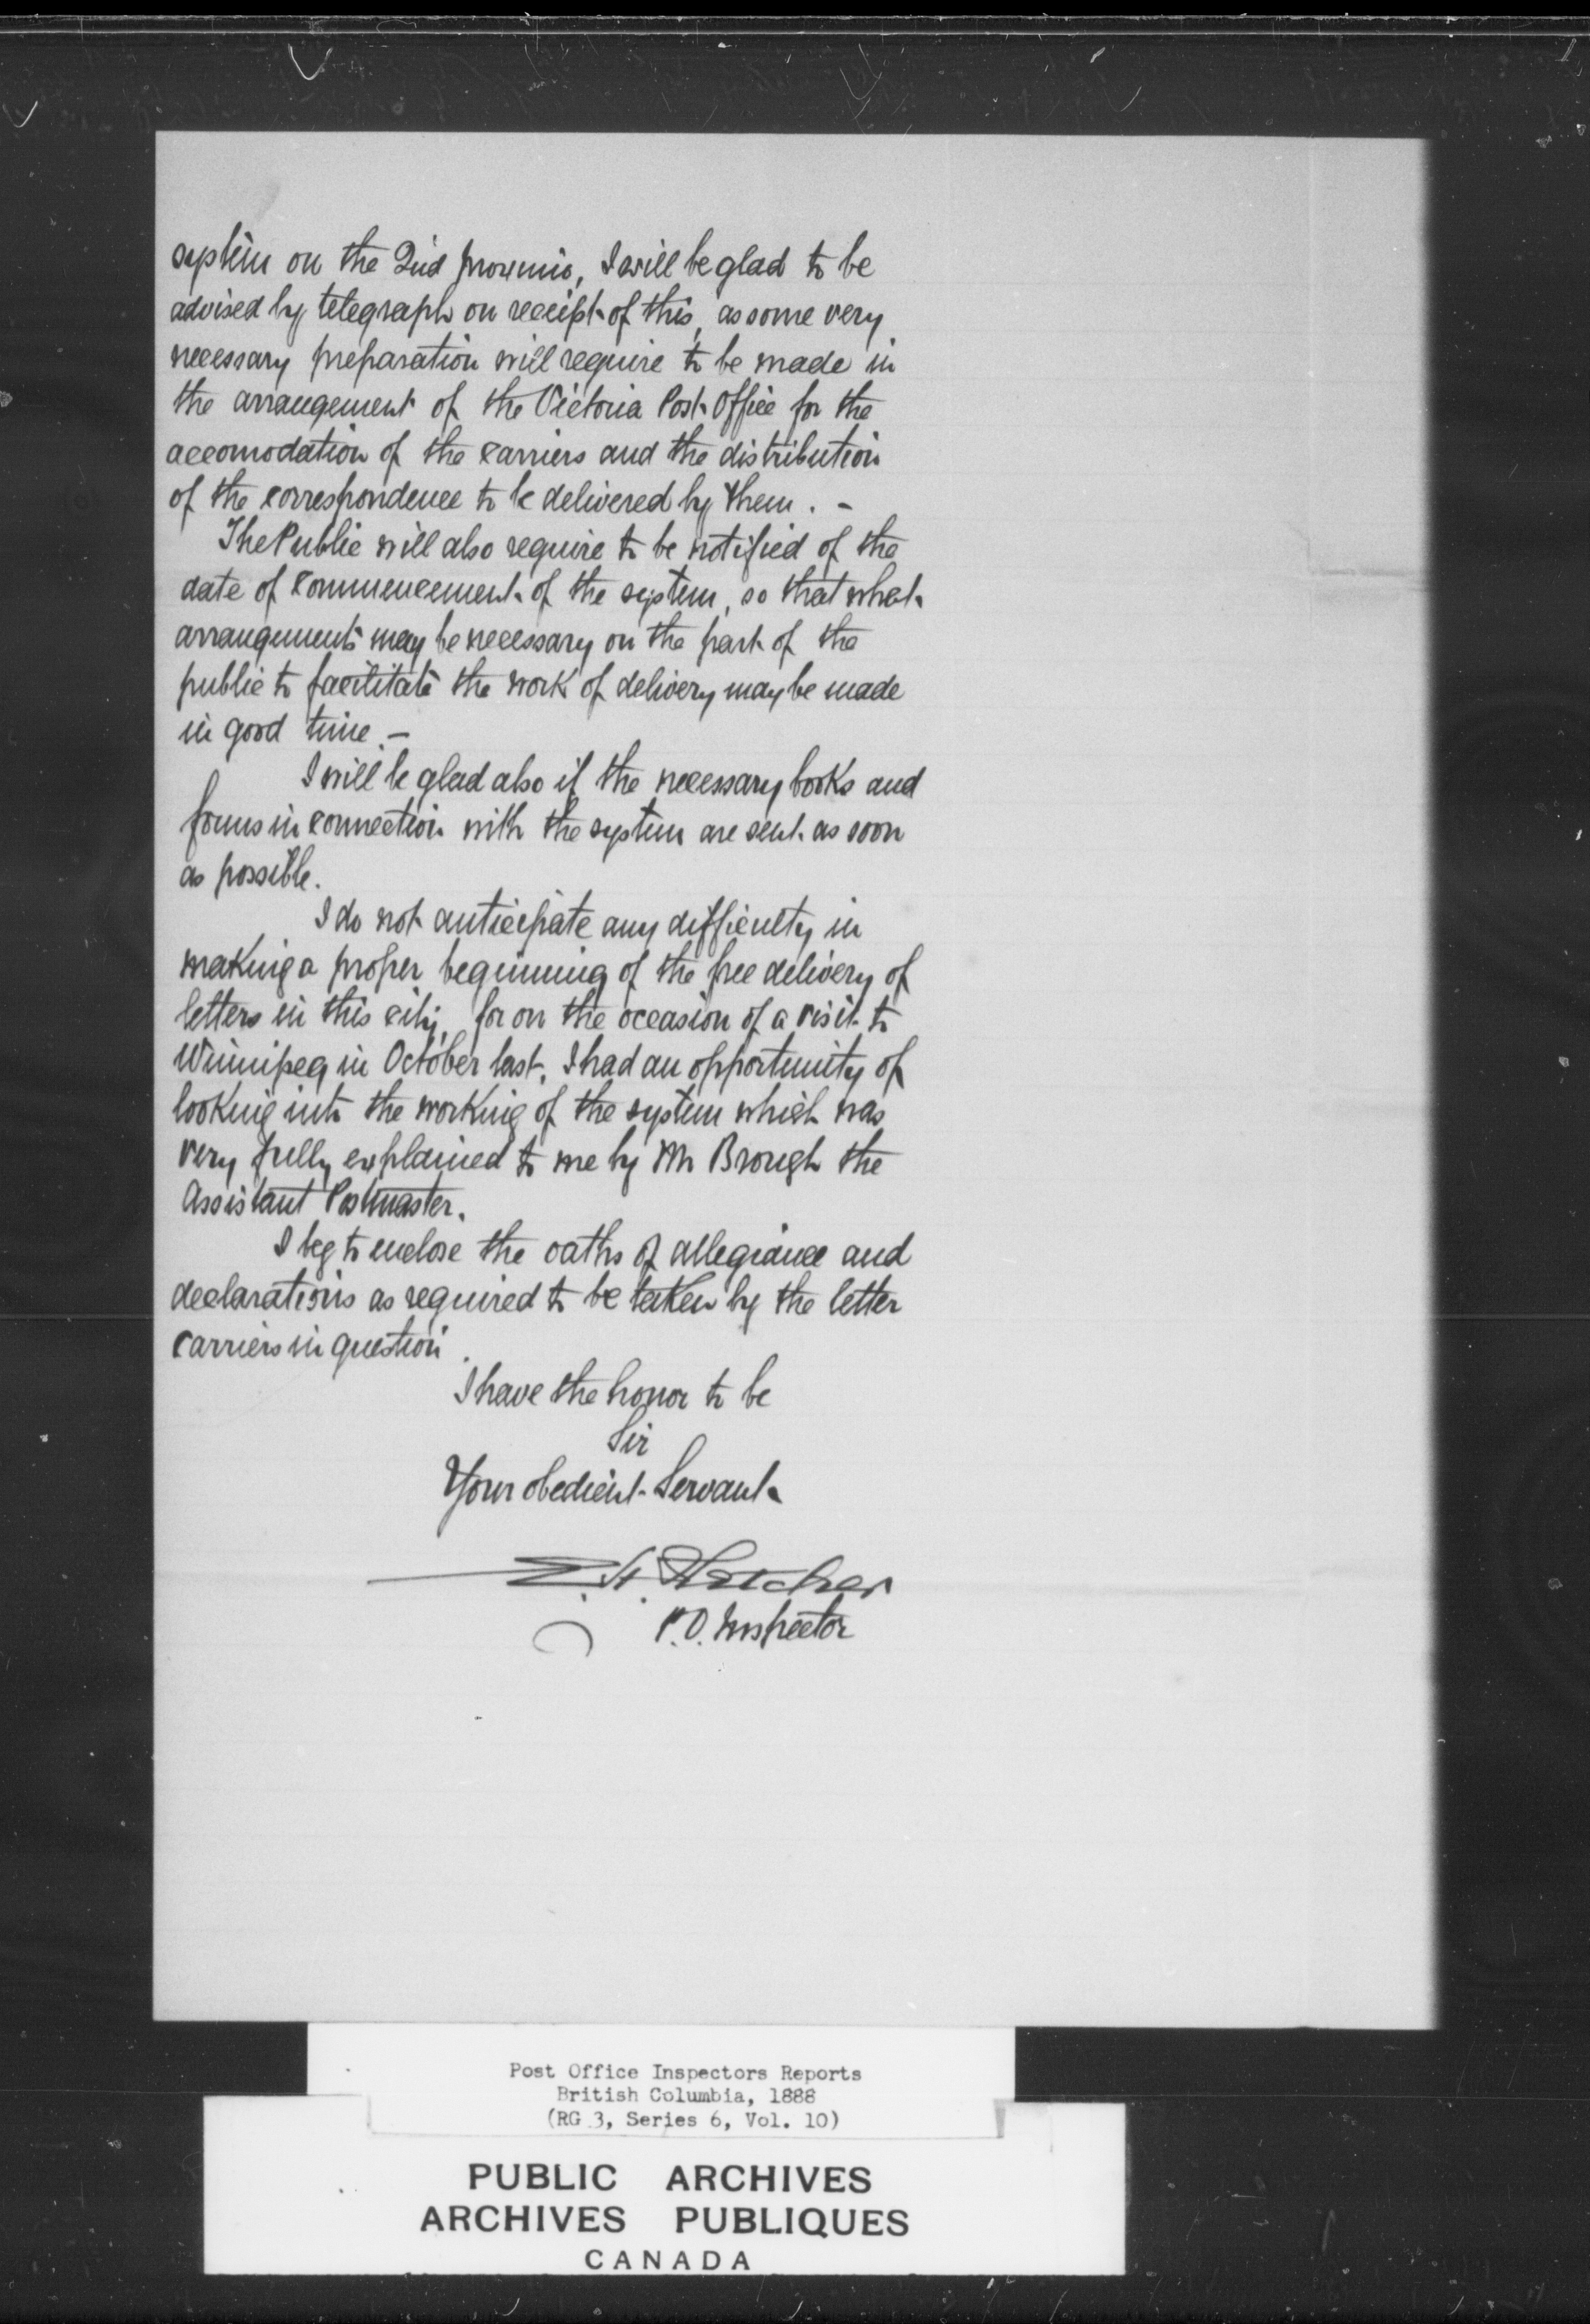 system on the 2nd proximo, I will be glad to be
advised by telegraph on receipt of this, as some very
necessary preparation will require to be made in
the arrangement of the Victoria Post Office for the
accomodation of the carriers and the distribution
of the correspondence to be delivered by them. -
The Public will also require to be notified of the
date of commencement of the system, so that what
arrangements may be necessary on the part of the
public to facilitate the work of delivery may be made
in good time. -
I will be glad also if the necessary books and
forms in connection with the system are sent as soon
as possible.
I do not anticipate any difficulty in
making a proper beginning of the free delivery of
letters in this city, for on the occasion of a visit to
Winnipeg in October last, I had an opportunity of
looking into the working of the system which was
very fully explained to me by Mr Brough the
Assistant Postmaster.
I beg to enclose the oaths of allegiance and
declarations as required to be taken by the letter
carriers in question.
I have the honor to be
Sir
Your obedient Servant
E. H. Fletcher
P.O. Inspector
Post Office Inspectors Reports
British Columbia, 1888
(RG 3, Series 6, Vol. 10)
PUBLIC ARCHIVES
ARCHIVES PUBLIQUES
CANADA